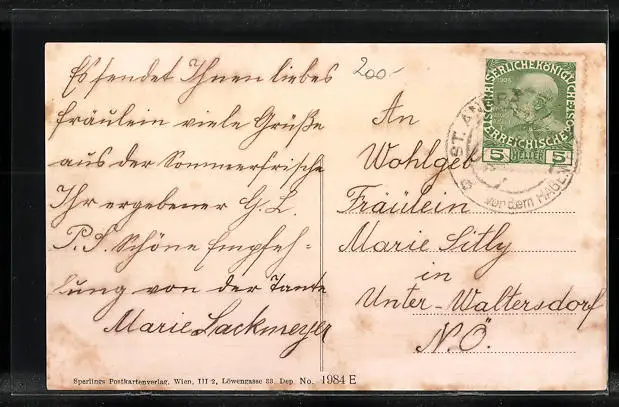 Es sendet Ihnen liebes
Fräulein viele Grüße
aus der Sommerfrische
Ihr ergebener G. L.
P.S. Schöne Empfeh-
lung von der Tante
Marie Lackmeyer
200.-
An
Wohlgeb
Fräulein
Marie Sitly
in
Unter-Waltersdorf
N.Ö.
KAISERLICHE KÖNIGLICHE
ÖSTERREICHISCHE
5 HELLER 5
ST. AN
vor dem HAGEN
Sperlings Postkartenverlag, Wien, III 2, Löwengasse 33. Dep. No. 1984 E